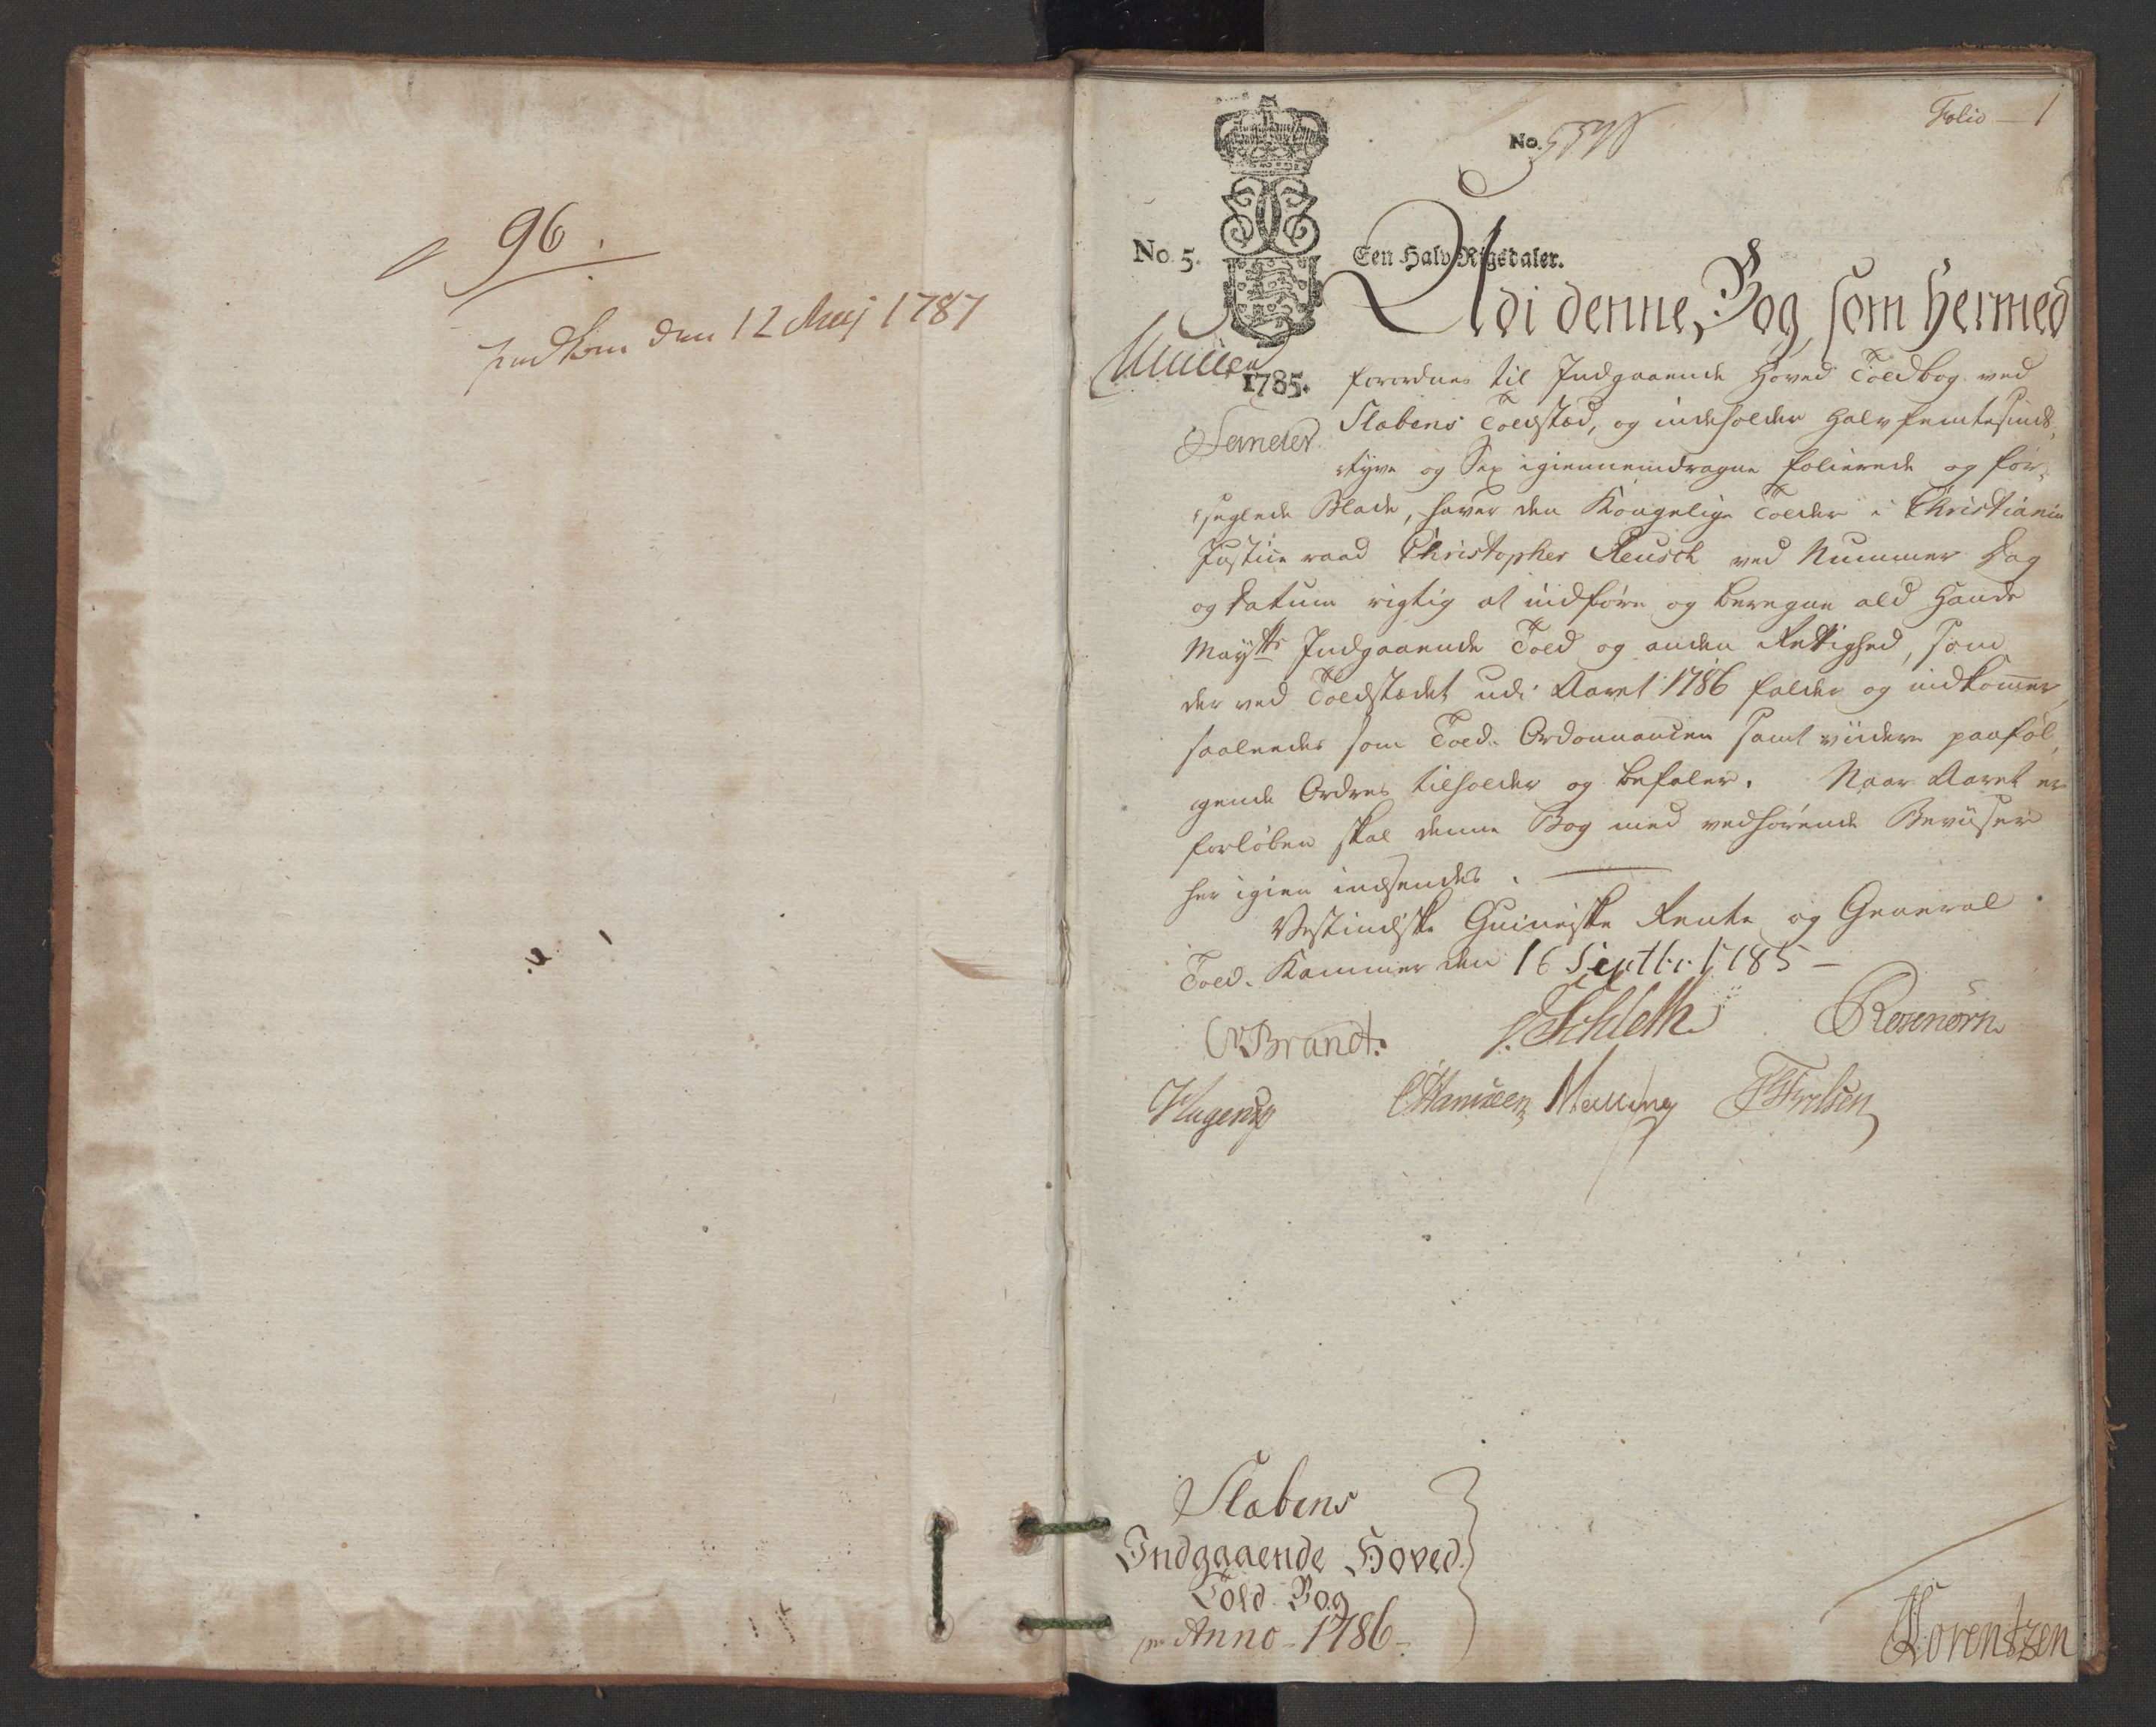 96.
indkom den 12 Maij 1787
Folio - 1
No.
No. 5.
Een Halv Rigsdaler.
Udi denne Bog, som hermed
1785.
forordnes til Indgaaende Hoved Toldbog ved
Slabens Toldstæd, og indeholder Halvfemtesinds,
tyve og Sex igiennemdragne folierede og for,
seglede Blade, haver den Kongelige Tolder i Christiania
Justice raad Christopher Reusch ved Nummer Dag
og Datum rigtig at indføre og beregne ald Hands
Maytts Indgaaende Told og anden Rettighed, som
der ved Toldstædet udi Aaret 1786 falder og indkomer,
saaleedes som Told-Ordonnancen samt viidere paaføl,
gende Ordres tilholder og befaler. Naar Aaret er
forløben skal denne Bog med vedhørende Beviiser
her igien indsendes.
Vestindiske Guineiske Rente og General
Told-Kammer den 16 Septbr. 1785 -
Brandt. Schleth Rosenørn
Hagerup CHansen Malling
Slabens
Indgaaende Hoved
Told-Bog
pro Anno - 1786 -
Lorentzen